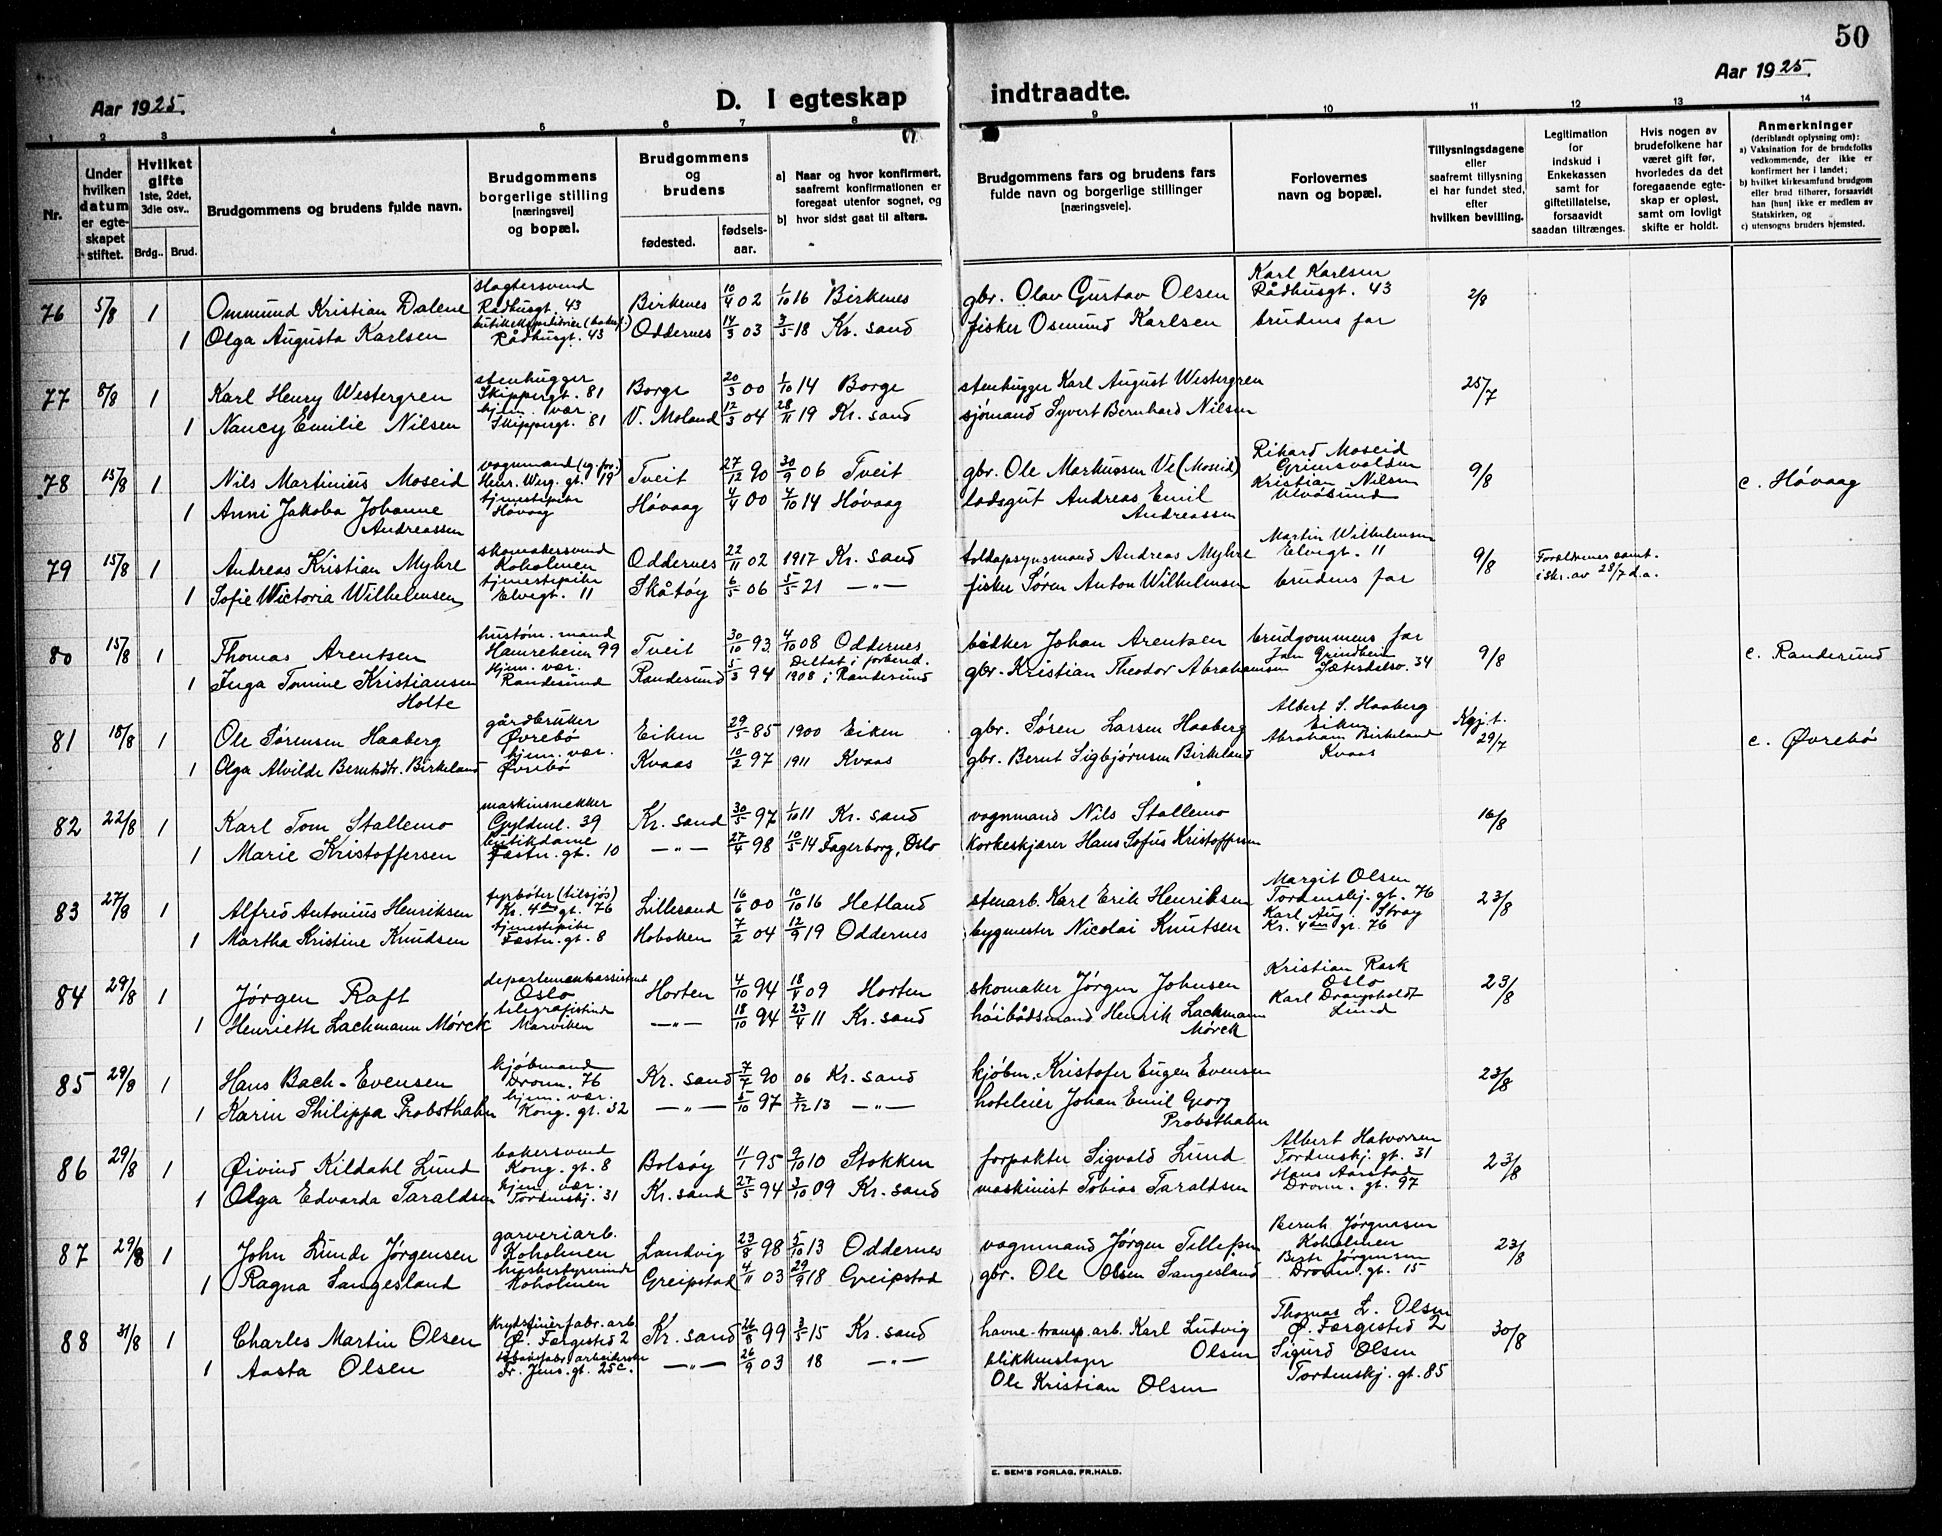 50
Aar 1925.
D. I egteskap
indtraadte.
Aar 1925.
1 2 3 4 5 6 7 8 9 10 11 12 13 14
Nr.
Under hvilken datum er egteskapet stiftet.
Hvilket gifte 1ste, 2det, 3die osv..
Brdg.. Brud.
Brudgommens og brudens fulde navn.
Brudgommens borgerlige stilling [næringsvei] og bopæl.
Brudgommens og brudens
fødested. fødsels-aar.
a) Naar og hvor konfirmert, saafremt konfirmationen er foregaat utenfor sognet, og
b) hvor sidst gaat til alters.
Brudgommens fars og brudens fars fulde navn og borgerlige stillinger [næringsveie].
Forlovernes navn og bopæl.
Tillysningsdagene eller saafremt tillysning ei har fundet sted, efter hvilken bevilling.
Legitimation for indskud i Enkekassen samt for giftetillatelse, forsaavidt saadan tiltrænges.
Hvis nogen av brudefolkene har været gift før, hvorledes da det foregaaende egteskap er opløst, samt om lovligt skifte er holdt.
Anmerkninger
(deriblandt oplysning om):
a) Vaksination for de brudefolks vedkommende, der ikke er konfirmert her i landet;
b) hvilket kirkesamfund brudgom eller brud tilhører, forsaavidt han [hun] ikke er medlem av Statskirken, og
c) utensogns bruders hjemsted.
76 5/8 1 Ommund Kristian Dalene slagtersvend Rådhusgt. 43 Birkenes 10/4 02 1/10 16 Birkenes gbr. Olav Gustav Olsen Karl Karlsen Rådhusgt. 43 2/8
1 Olga Augusta Karlsen Rådhusgt. 43 Oddernes 14/3 03 3/5 18 Kr. sand fisker Osmund Karlsen brudens far
77 8/8 1 Karl Henry Westergren stenhugger Skippergt. 81 Borge 20/3 00 1/10 14 Borge stenhugger Karl August Westergren 25/7
1 Nancy Emilie Nilsen hjem. vær. Skippergt. 81 V. Moland 12/3 04 28/11 19 Kr. sand sjømand Syvert Bernhard Nilsen
78 15/8 1 Nils Martinius Moseid vognmand (eg. forr.) Henr. Werg. gt. 19 Tveit 27/12 90 30/9 06 Tveit gbr. Ole Markussen Ve (Moseid) Rikard Moseid Grimsvolden 9/8 c. Høvaag
1 Anni Jakoba Johanne Andreassen tjenestepike Høvaag Høvaag 4/4 00 4/10 14 Høvaag losgut Andreas Emil Andreassen Kristian Nilsen Ulvøsund
79 15/8 1 Andreas Kristian Myhre skomakersvend Koholmen Oddernes 22/11 02 1917 Kr. sand toldopsynsmand Andreas Myhre Martin Wilhelmsen Elvegt. 11 9/8 Forældrenes samt. i skr. av 28/7 d.a.
1 Sofie Wictoria Wilhelmsen tjenestepike Elvegt. 11 Skåtøy 6/5 06 5/5 21 —"— fisker Søren Anton Wilhelmsen brudens far
80 15/8 1 Thomas Arentsen hustøm. mand Hamreheien 99 Tveit 30/10 93 4/10 08 Oddernes bødker Johan Arentsen brudgommens far 9/8 c. Randesund
1 Inga Tomine Kristiansen Holte hjem. vær. Randesund Randesund 5/3 94 Deltat i forbered. 1908 i Randesund gbr. Kristian Theodor Abrahamsen Jan Grindheim Sætesdalsv. 34
81 18/8 1 Ole Sørensen Haaberg gårdbruker Øvrebø Eiken 29/5 85 1900 Eiken gbr. Søren Larsen Haaberg Albert S. Haaberg Eiken Kgj. t. 29/7 c. Øvrebø
1 Olga Alvilde Berntsdtr. Birkeland hjem. vær. Øvrebø Kvaas 10/2 97 1911 Kvaas gbr. Bernt Sigbjørnsen Birkeland Abraham Birkeland Kvaas
82 22/8 1 Karl Tom Stallemo maskinsnekker Gyldenl. 39 Kr. sand 30/5 97 1/10 11 Kr. sand vognmand Nils Stallemo 16/8
1 Marie Kristoffersen butikdame Fæstn. gt. 10 —"— 27/4 98 10/5 14 Fagerborg, Oslo Korkeskjærer Hans Sofus Kristoffersen
83 27/8 1 Alfred Antonius Henriksen fyrbøter (tilsjøs) Kr. 4des gt. 76 Lillesand 16/6 00 10/10 16 Hetland stenarb. Karl Erik Henriksen Margit Olsen Tordenskj. gt. 76 23/8
1 Martha Kristine Knudsen tjenestepike Fæstn. gt. 8 Hoboken 7/2 04 12/9 19 Oddernes bygmester Nicolai Knutsen Karl Aug. Stray Kr. 4des gt. 76
84 29/8 1 Jørgen Raft departementsassistent Oslo Horten 4/10 94 18/4 09 Horten skomaker Jørgen Johnsen Kristian Rask Oslo 23/8
1 Henriette Lachmann Mørck telegrafistinde Marviken —"— 18/10 94 23/4 11 Kr. sand høibådsmand Henrik Lachmann Mørck Karl Drangsholdt Lund
85 29/8 1 Hans Bach-Evensen kjøbmand Dronn. 76 Kr. sand 7/7 90 06 Kr. sand kjøbm. Kristofer Eugen Evensen 23/8
1 Karin Philippa Probsthahn hjem. vær. Kong. gt. 32 —"— 5/10 97 7/12 13 —"— hoteleier Johan Emil Georg Probsthahn
86 29/8 1 Øivind Kildahl Lund bakersvend Kong. gt. 8 Bolsøy 11/1 95 9/10 10 Stokken forpakter Sigvald Lund Albert Halvorsen Tordenskj. gt. 31 23/8
1 Olga Edvarda Taraldsen hjem. vær. Tordenskj. 31 Kr. sand 27/5 94 3/10 09 Kr. sand maskinist Tobias Taraldsen Hans Aarstad Dronn. gt. 97
87 29/8 1 John Lunde Jørgensen garveriarb. Koholmen Landvig 23/8 98 5/10 13 Oddernes vognmand Jørgen Tellefsen Bernh. Jørgensen Koholmen 23/8
1 Ragna Sangesland husbestyrerinde Koholmen Greipstad 4/11 03 29/9 18 Greipstad gbr. Ole Olsen Sangesland Berte Jørgensen Dronn. gt. 15
88 31/8 1 Charles Martin Olsen Krydsfinerfabr. arb. Ø. Færgested 2 Kr. sand 26/8 99 3/5 15 Kr. sand havne-transp. arb. Karl Ludvig Olsen Thomas L. Olsen Ø. Færgested 2 30/8
1 Aasta Olsen tobaksfabr. arbeiderske Fr. Jens. gt. 25c. —"— 26/9 03 18 —"— blikkenslager Ole Kristian Olsen Sigurd Olsen Tordenskj. gt. 85
E. SEM'S FORLAG, FR.HALD.